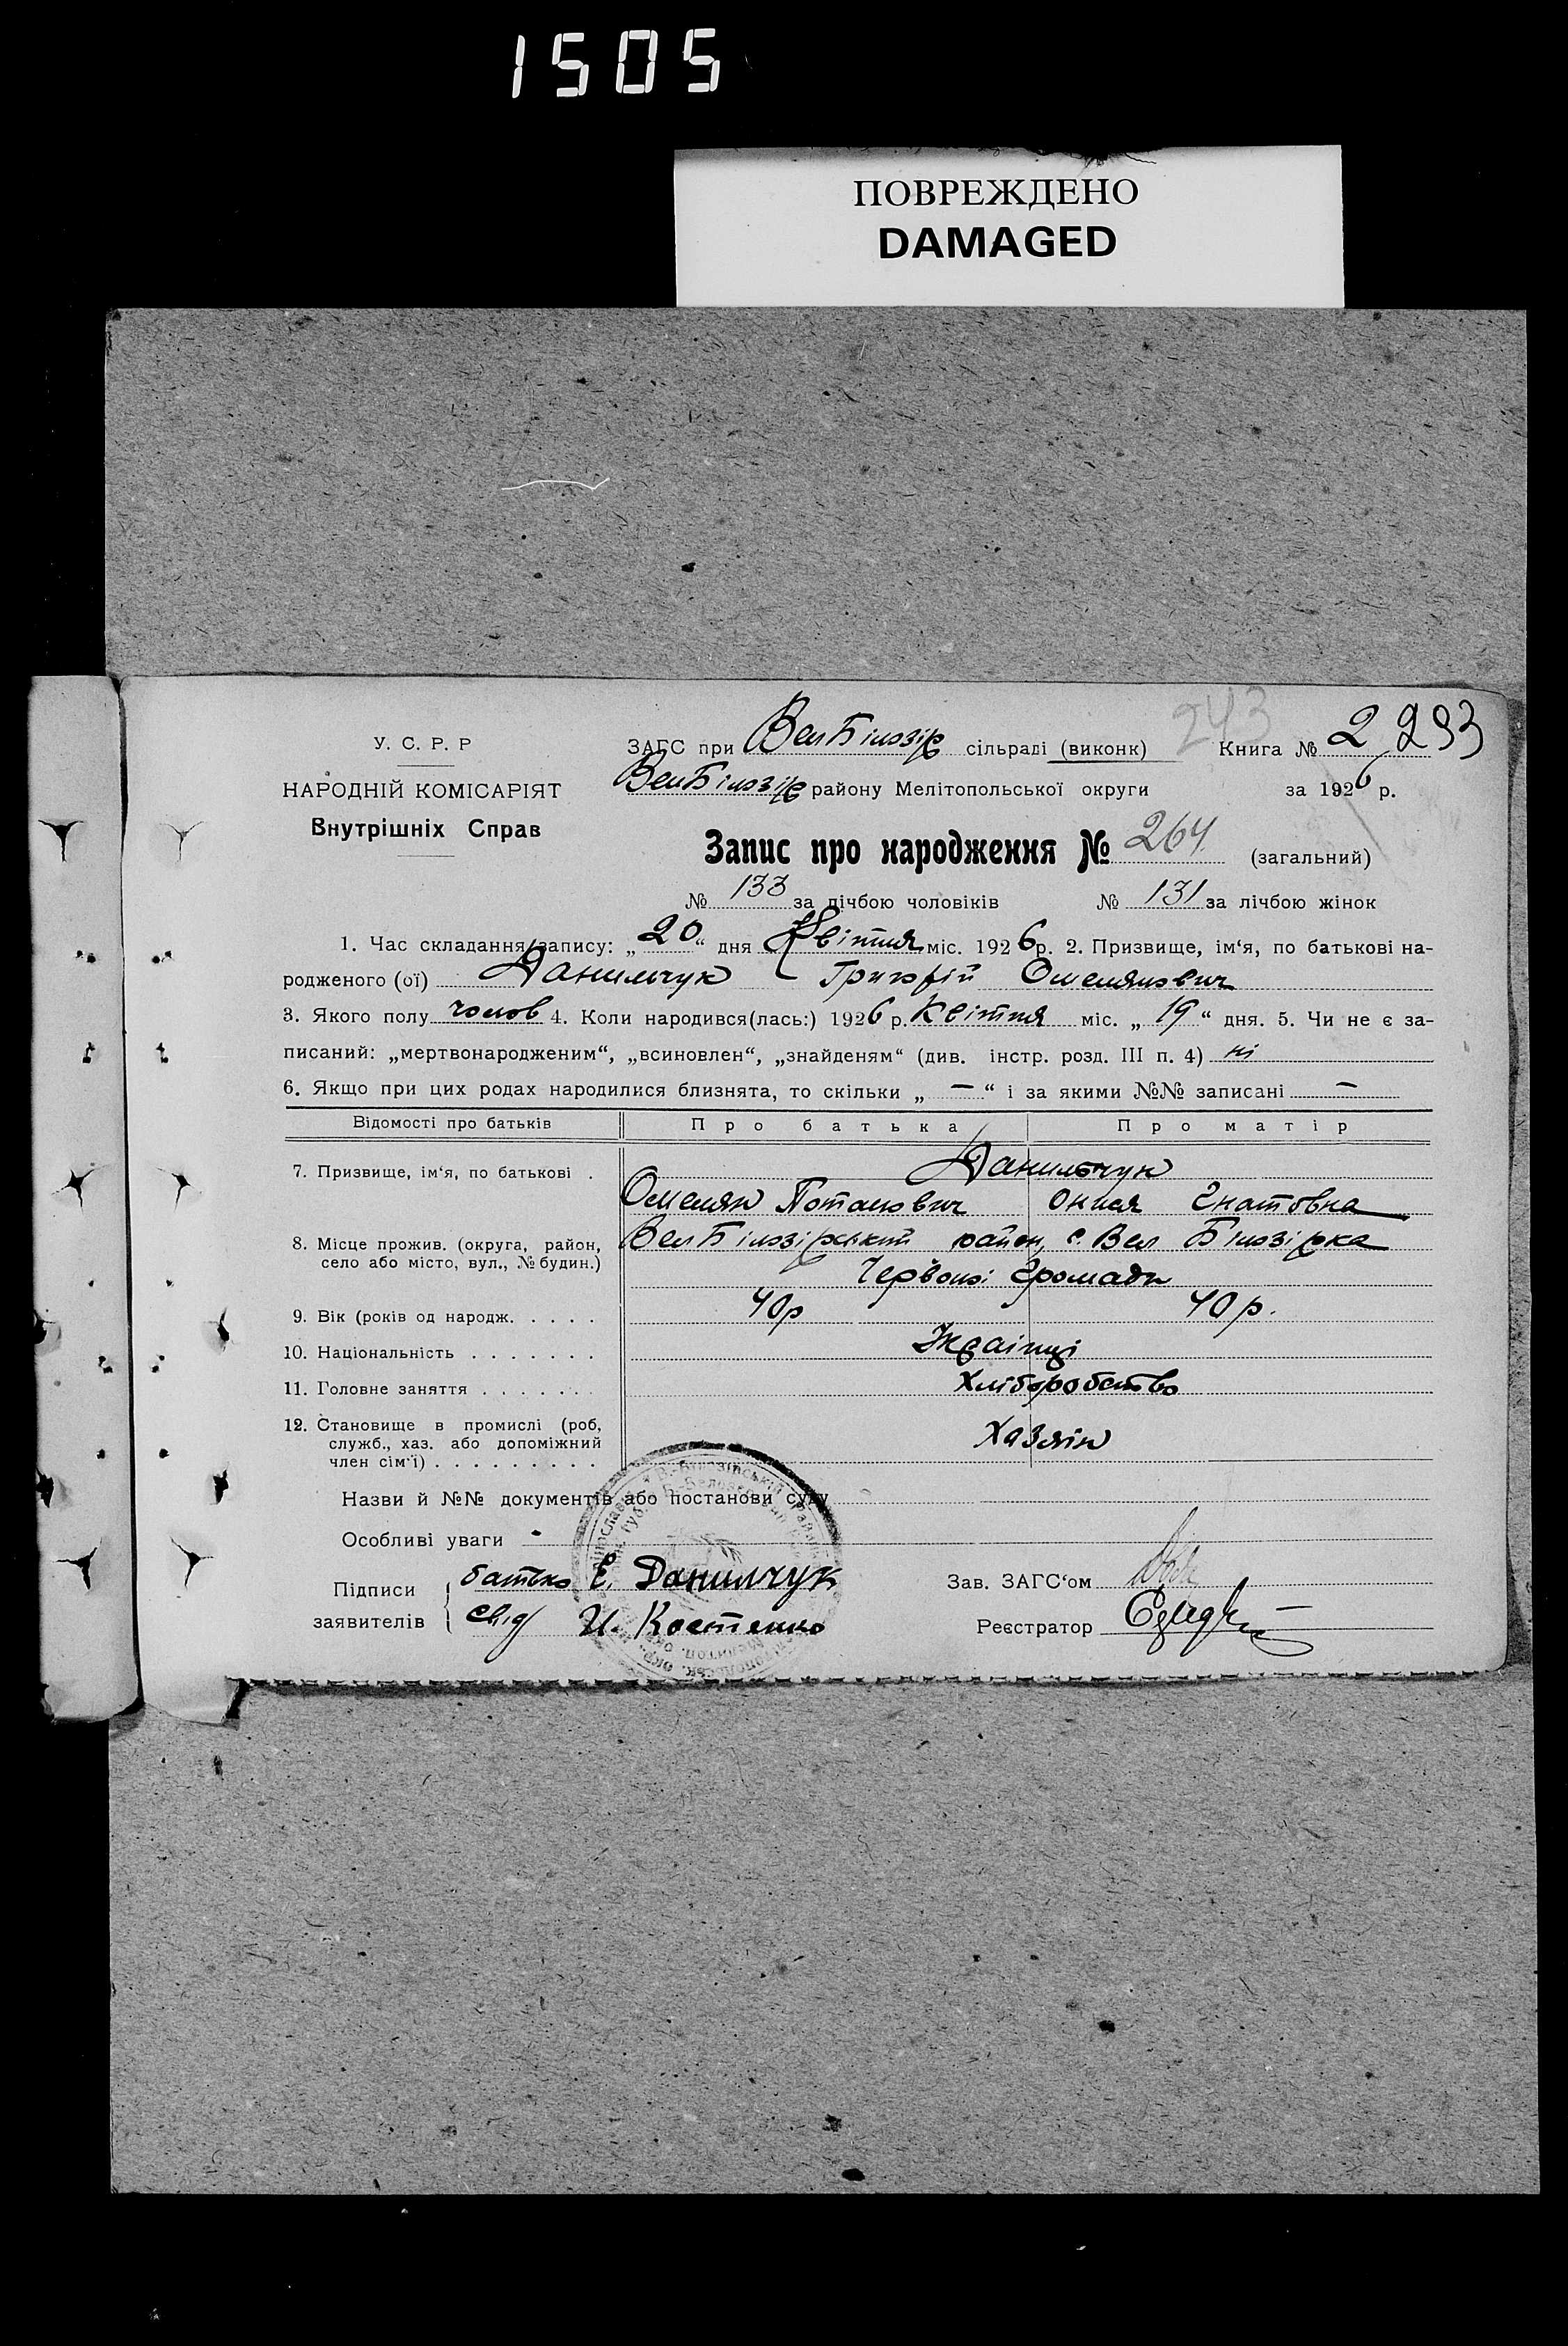 1505
ПОВРЕЖДЕНО
DAMAGED
243
У. С. Р. Р
НАРОДНІЙ КОМІСАРІЯТ
Внутрішніх Справ
ЗАГС при ВелБілозір сільраді (виконк) Книга № 2 293
ВелБілозір району Мелітопольської округи за 1926 р.
Запис про народження № 264 (загальний)
№ 133 за лічбою чоловіків № 131 за лічбою жінок
1. Час складання запису: „20“ дня Квітня міс. 1926 р. 2. Призвище, ім‘я, по батькові на-
родженого (ої) Данильчук Григорій Омелянович
3. Якого полу чолов 4. Коли народився(лась:) 1926 р. Квітня міс. „19“ дня. 5. Чи не є за-
писаний: „мертвонародженим“, „всиновлен“, „знайденям“ (див. інстр. розд. III п. 4) ні
6. Якщо при цих родах народилися близнята, то скільки „—“ і за якими №№ записані —
Відомості про батьків Про батька Про матір
7. Призвище, ім‘я, по батькові . Данильчук
Омелян Потапович Онися Гнатовна
8. Місце прожив. (округа, район, село або місто, вул., № будин.) ВелБілозірський район, с. Вел Білозірка
Червоної Громади
9. Вік (років од народж. . . . . 40р 40р.
10. Національність . . . . . . . Українці
11. Головне заняття . . . . . . . Хліборобство
12. Становище в промислі (роб, служб., хаз. або допоміжний член сім‘ї) . . . . . . . . . Хазяін
Назви й №№ документів або постанови суду
Особливі уваги
Підписи заявителів { батько Є. Данилчук
свід И. Костенко
Зав. ЗАГС‘ом
Реєстратор